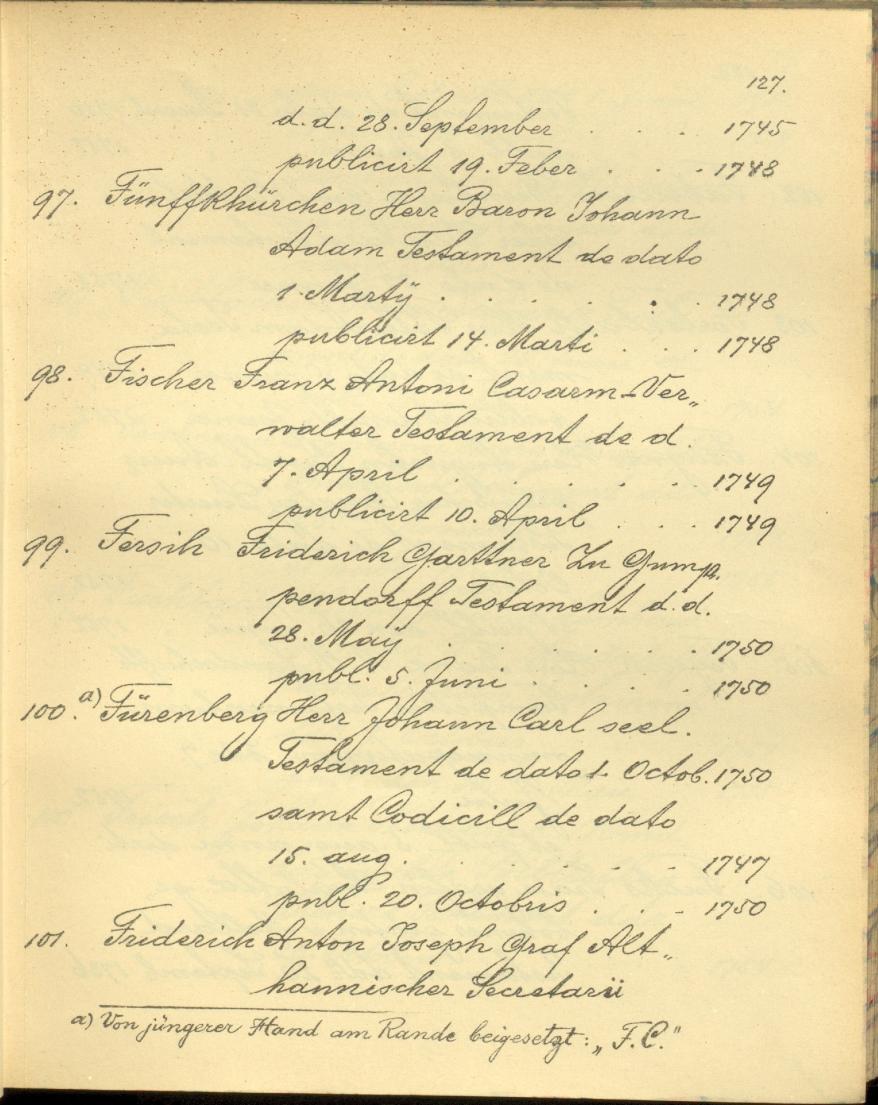 127.
d. d. 28. September . . . 1745
publicirt 19. Feber . . . 1748
97. Fünffkhürchen Herr Baron Johann
Adam Testament de dato
1. Martÿ . . . . . . 1748
publicirt 14. Marti . . . 1748
98. Fischer Franz Antoni Casarm-Ver„
walter Testament de d.
7. April . . . . . . 1749
publicirt 10. April . . . 1749
99. Fersih Friderich Garttner Zu Gump„
pendorff Testament d. d.
28. Maÿ . . . . . . 1750
publ. 5. Juni . . . . 1750
100. a) Fürenberg Herr Johann Carl seel.
Testament de dato 1. Octob. 1750
samt Codicill de dato
15. aug. . . . . . 1747
publ. 20. Octobris . . . 1750
101. Friderich Anton Joseph Graf Alt„
hannischer Secretarii
a) Von jüngerer Hand am Rande beigesetzt: „F. C."